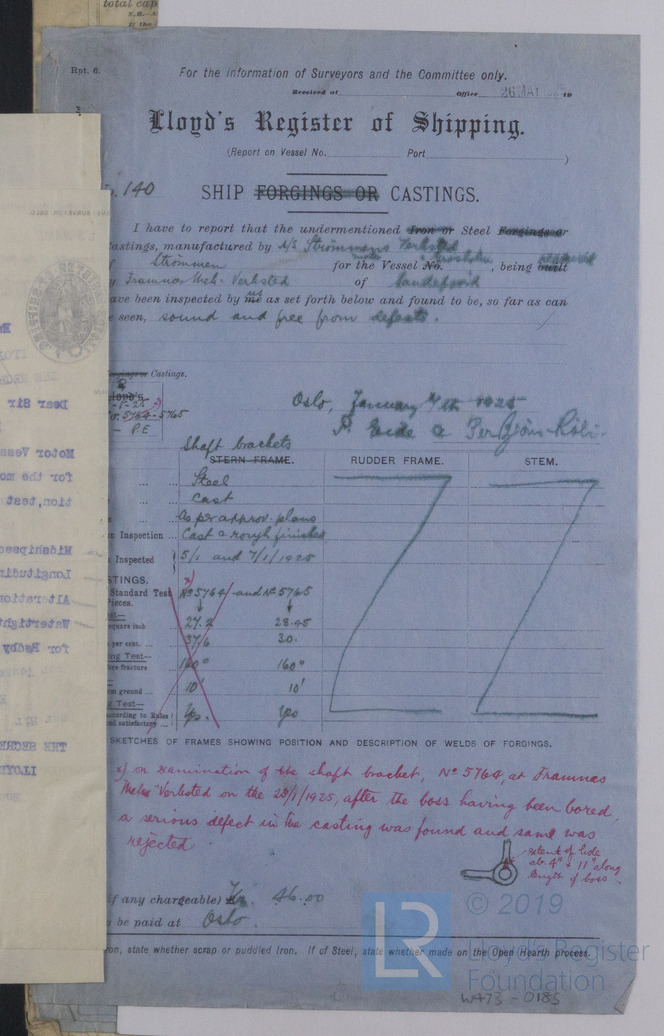 total cap
N.B.—A
Rpt. 6.
For the information of Surveyors and the Committee only.
Received at Office 26 MAI 19
Lloyd's Register of Shipping.
(Report on Vessel No. Port )
140
SHIP FORGINGS OR CASTINGS.
I have to report that the undermentioned Iron or Steel Forgings or
Castings, manufactured by A/S Strömmens Verksted
Strömmen for the Vessel No. , being built
Framnæs Mek. Verksted of Sandefjord
have been inspected by me us as set forth below and found to be, so far as can
be seen, sound and free from defects.
Forgings or Castings.
Lloyd's
5764-5765
P.E
Oslo, January 7th 1925
P. Eide &
Shaft brackets
STERN FRAME. RUDDER FRAME. STEM.
Steel
Cast
As per approv. plans
Inspection Cast & rough finished
Inspected 5/1 and 7/1/1925
x)
Standard Test Nº 5764 and Nº 5765
Pieces.
square inch 27.2 28.45
per cent. 37/6 30.
fracture 160° 160°
ground 10' 10'
Test—
according to Rules
and satisfactory Yes. Yes
SKETCHES OF FRAMES SHOWING POSITION AND DESCRIPTION OF WELDS OF FORGINGS.
x) On examination of the shaft bracket, Nº 5764, at Framnæs
Mek. Verksted on the 28/1/1925, after the boss having been bored,
a serious defect in the casting was found and same was
rejected.
extent of hole
ab. 4" + 11" along
length of boss.
if any chargeable) Kr. 46.00
be paid at Oslo.
Iron, state whether scrap or puddled Iron. If of Steel, state whether made on the Open Hearth process.
© 2019
LR
Lloyd's Register
Foundation
W473-0185
Dear Sir
Motor Vess
for the mo
tion, test
Midshipsec
Longitudin
Alteration
Watertight
for Rudy
THE SECRE
LLOYD